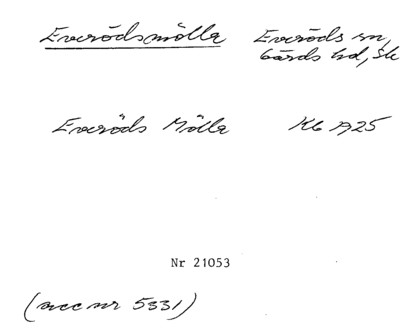 Everödsmölla Everöds sn,
Gärds hd, Sk
Everöds Mölla Kb 1925
Nr 21053
(acc nr 5331)